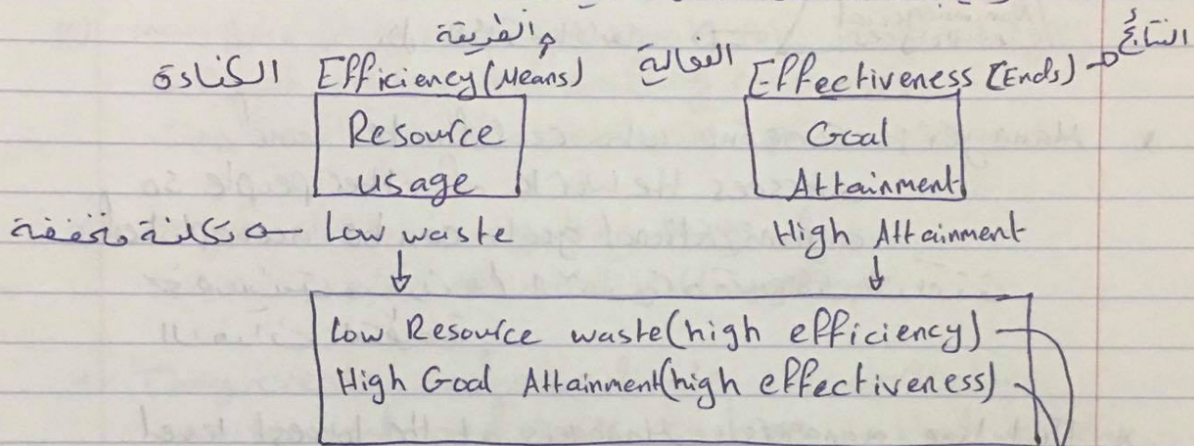 الطريقة
الكفاءة Efficiency (Means) الفعالية Effectiveness (Ends) → النتائج
Resource Goal
usage Attainment
تكلفة منخفضة ← Low waste High Attainment
Low Resource waste (high efficiency)
High Goal Attainment (high effectiveness)